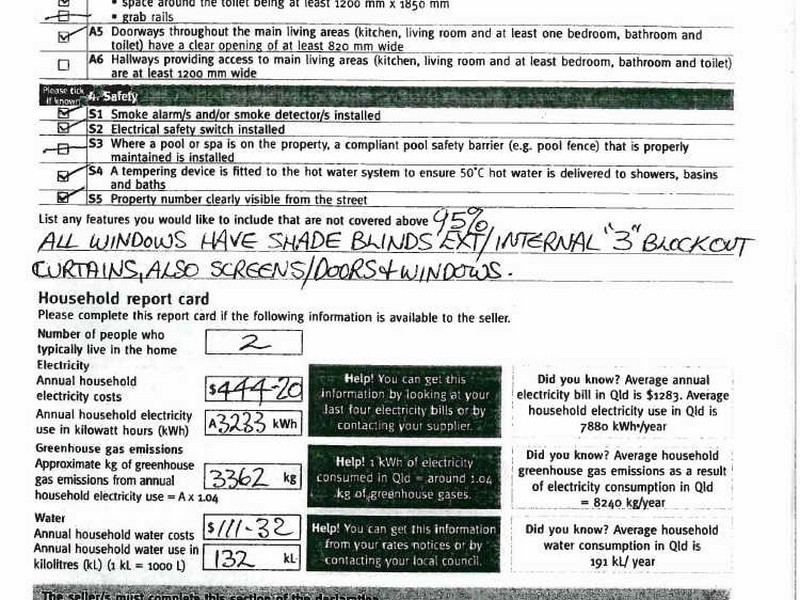 • space around the toilet being at least 1200 mm x 1850 mm
• grab rails
A5 Doorways throughout the main living areas (kitchen, living room and at least one bedroom, bathroom and
toilet) have a clear opening of at least 820 mm wide
A6 Hallways providing access to main living areas (kitchen, living room and at least bedroom, bathroom and toilet)
are at least 1200 mm wide
Please tick
if known
4. Safety
S1 Smoke alarm/s and/or smoke detector/s installed
S2 Electrical safety switch installed
S3 Where a pool or spa is on the property, a compliant pool safety barrier (e.g. pool fence) that is properly
maintained is installed
S4 A tempering device is fitted to the hot water system to ensure 50°C hot water is delivered to showers, basins
and baths
S5 Property number clearly visible from the street
List any features you would like to include that are not covered above 95%
ALL WINDOWS HAVE SHADE BLINDS EXT/INTERNAL "3" BLOCKOUT
CURTAINS, ALSO SCREENS/DOORS & WINDOWS.
Household report card
Please complete this report card if the following information is available to the seller.
Number of people who
typically live in the home
2
Electricity
Annual household
electricity costs
$444-20
Annual household electricity
use in kilowatt hours (kWh)
A 3233 kWh
Help! You can get this
information by looking at your
last four electricity bills or by
contacting your supplier.
Did you know? Average annual
electricity bill in Qld is $1283. Average
household electricity use in Qld is
7880 kWh/year
Greenhouse gas emissions
Approximate kg of greenhouse
gas emissions from annual
household electricity use = A x 1.04
3362 kg
Help! 1 kWh of electricity
consumed in Qld = around 1.04
kg of greenhouse gases.
Did you know? Average household
greenhouse gas emissions as a result
of electricity consumption in Qld
= 8240 kg/year
Water
Annual household water costs
$111-32
Annual household water use in
kilolitres (kL) (1 kL = 1000 L)
132 kL
Help! You can get this information
from your rates notices or by
contacting your local council.
Did you know? Average household
water consumption in Qld is
191 kL/ year
The seller/s must complete this section of the declaration